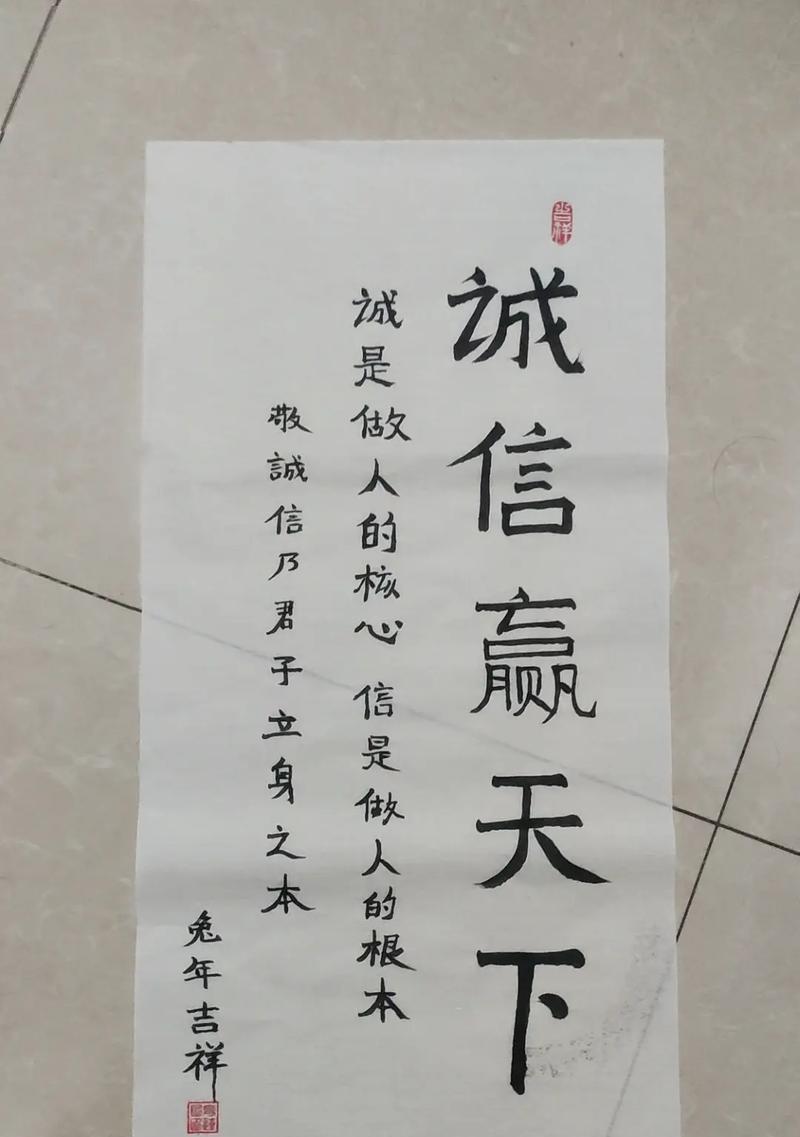 吉祥
誠信赢天下
誠是做人的核心 信是做人的根本
敬誠信乃君子立身之本
兔年吉祥